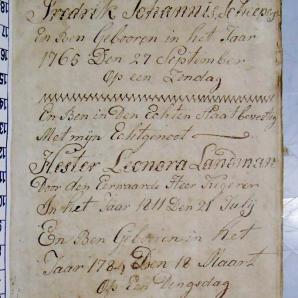 Fredrik Johannis Scheepers
En Ben Gebooren in het Jaar
1765 Den 27 September
Op een Zondag
En Ben in Den Echten Staat bevestig
Met mijn Echtgenoot
Hester Leonora Landman
Voor den Eerwaarde Heer
In het Jaar 1811 Den 21 Julij
En Ben Geboren in het
Jaar 1784 Den 18 Maart
Op Een Dingsdag